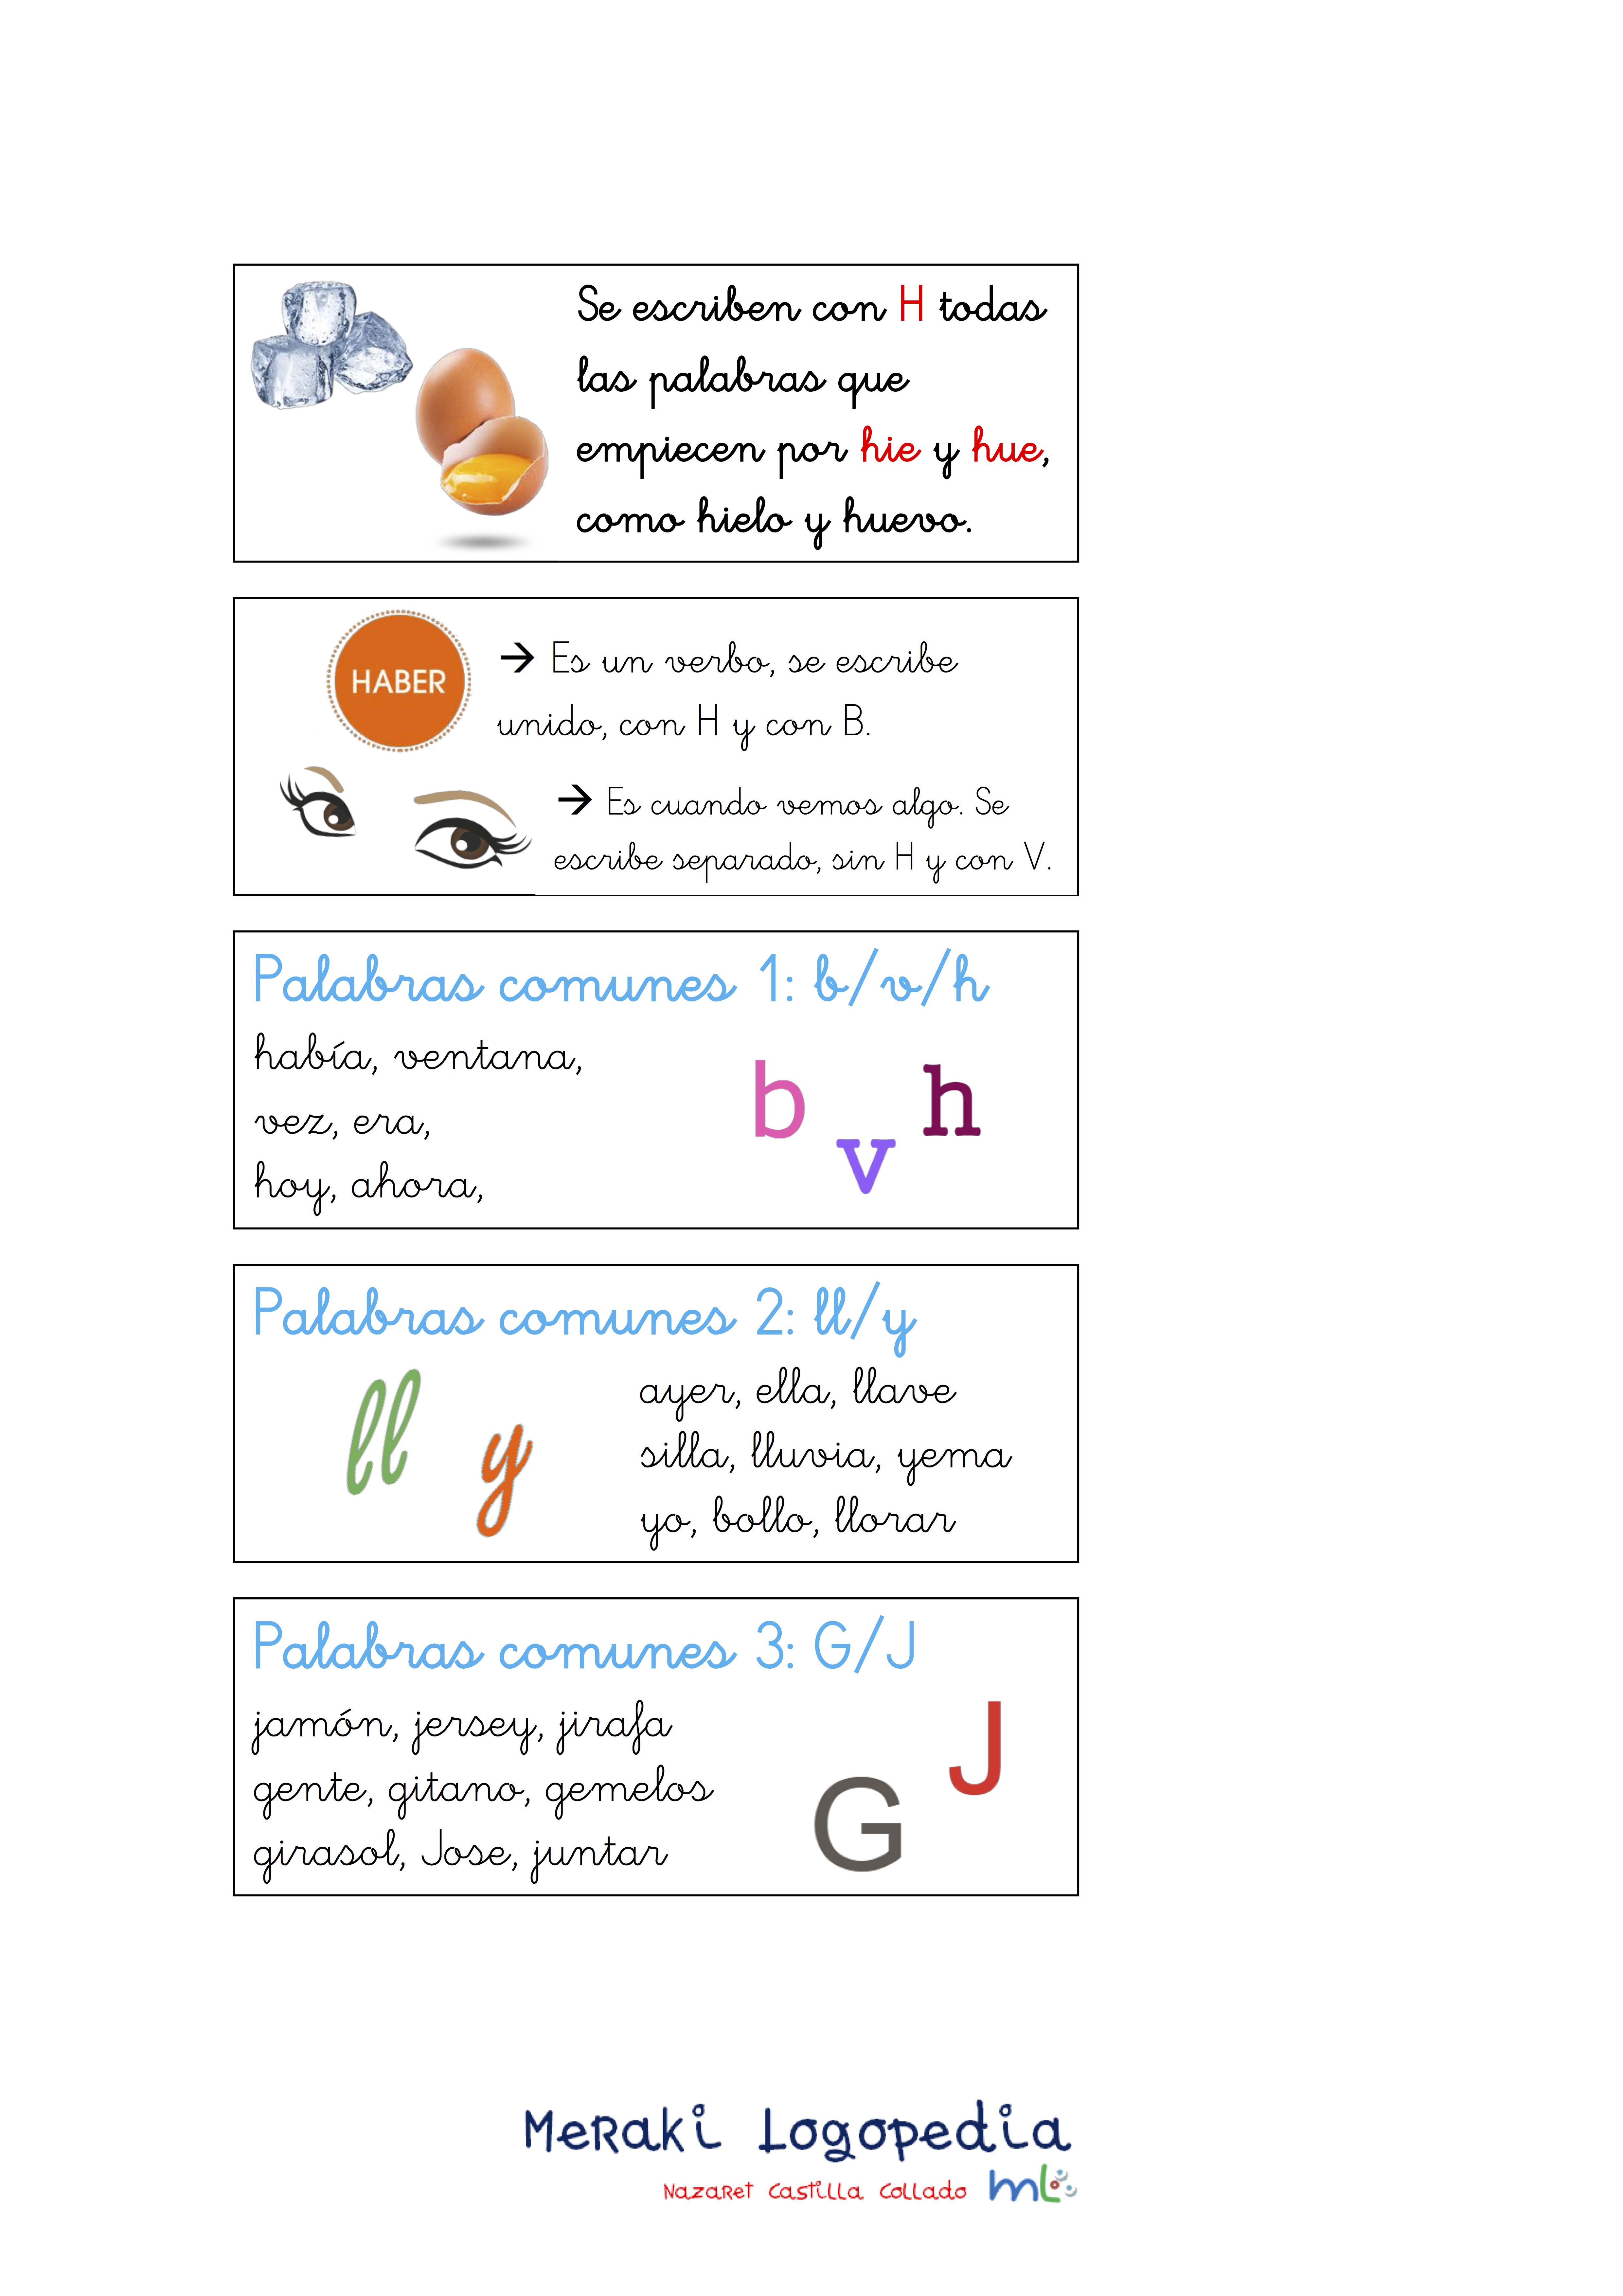 Se escriben con H todas
las palabras que
empiecen por hie y hue,
como hielo y huevo.
HABER
→ Es un verbo, se escribe
unido, con H y con B.
→ Es cuando vemos algo. Se
escribe separado, sin H y con V.
Palabras comunes 1: b/v/h
había, ventana,
vez, era,
hoy, ahora,
b
v
h
Palabras comunes 2: ll/y
ll
y
ayer, ella, llave
silla, lluvia, yema
yo, bollo, llorar
Palabras comunes 3: G/J
jamón, jersey, jirafa
gente, gitano, gemelos
girasol, Jose, juntar
G
J
Meraki Logopedia
Nazaret Castilla Collado mL